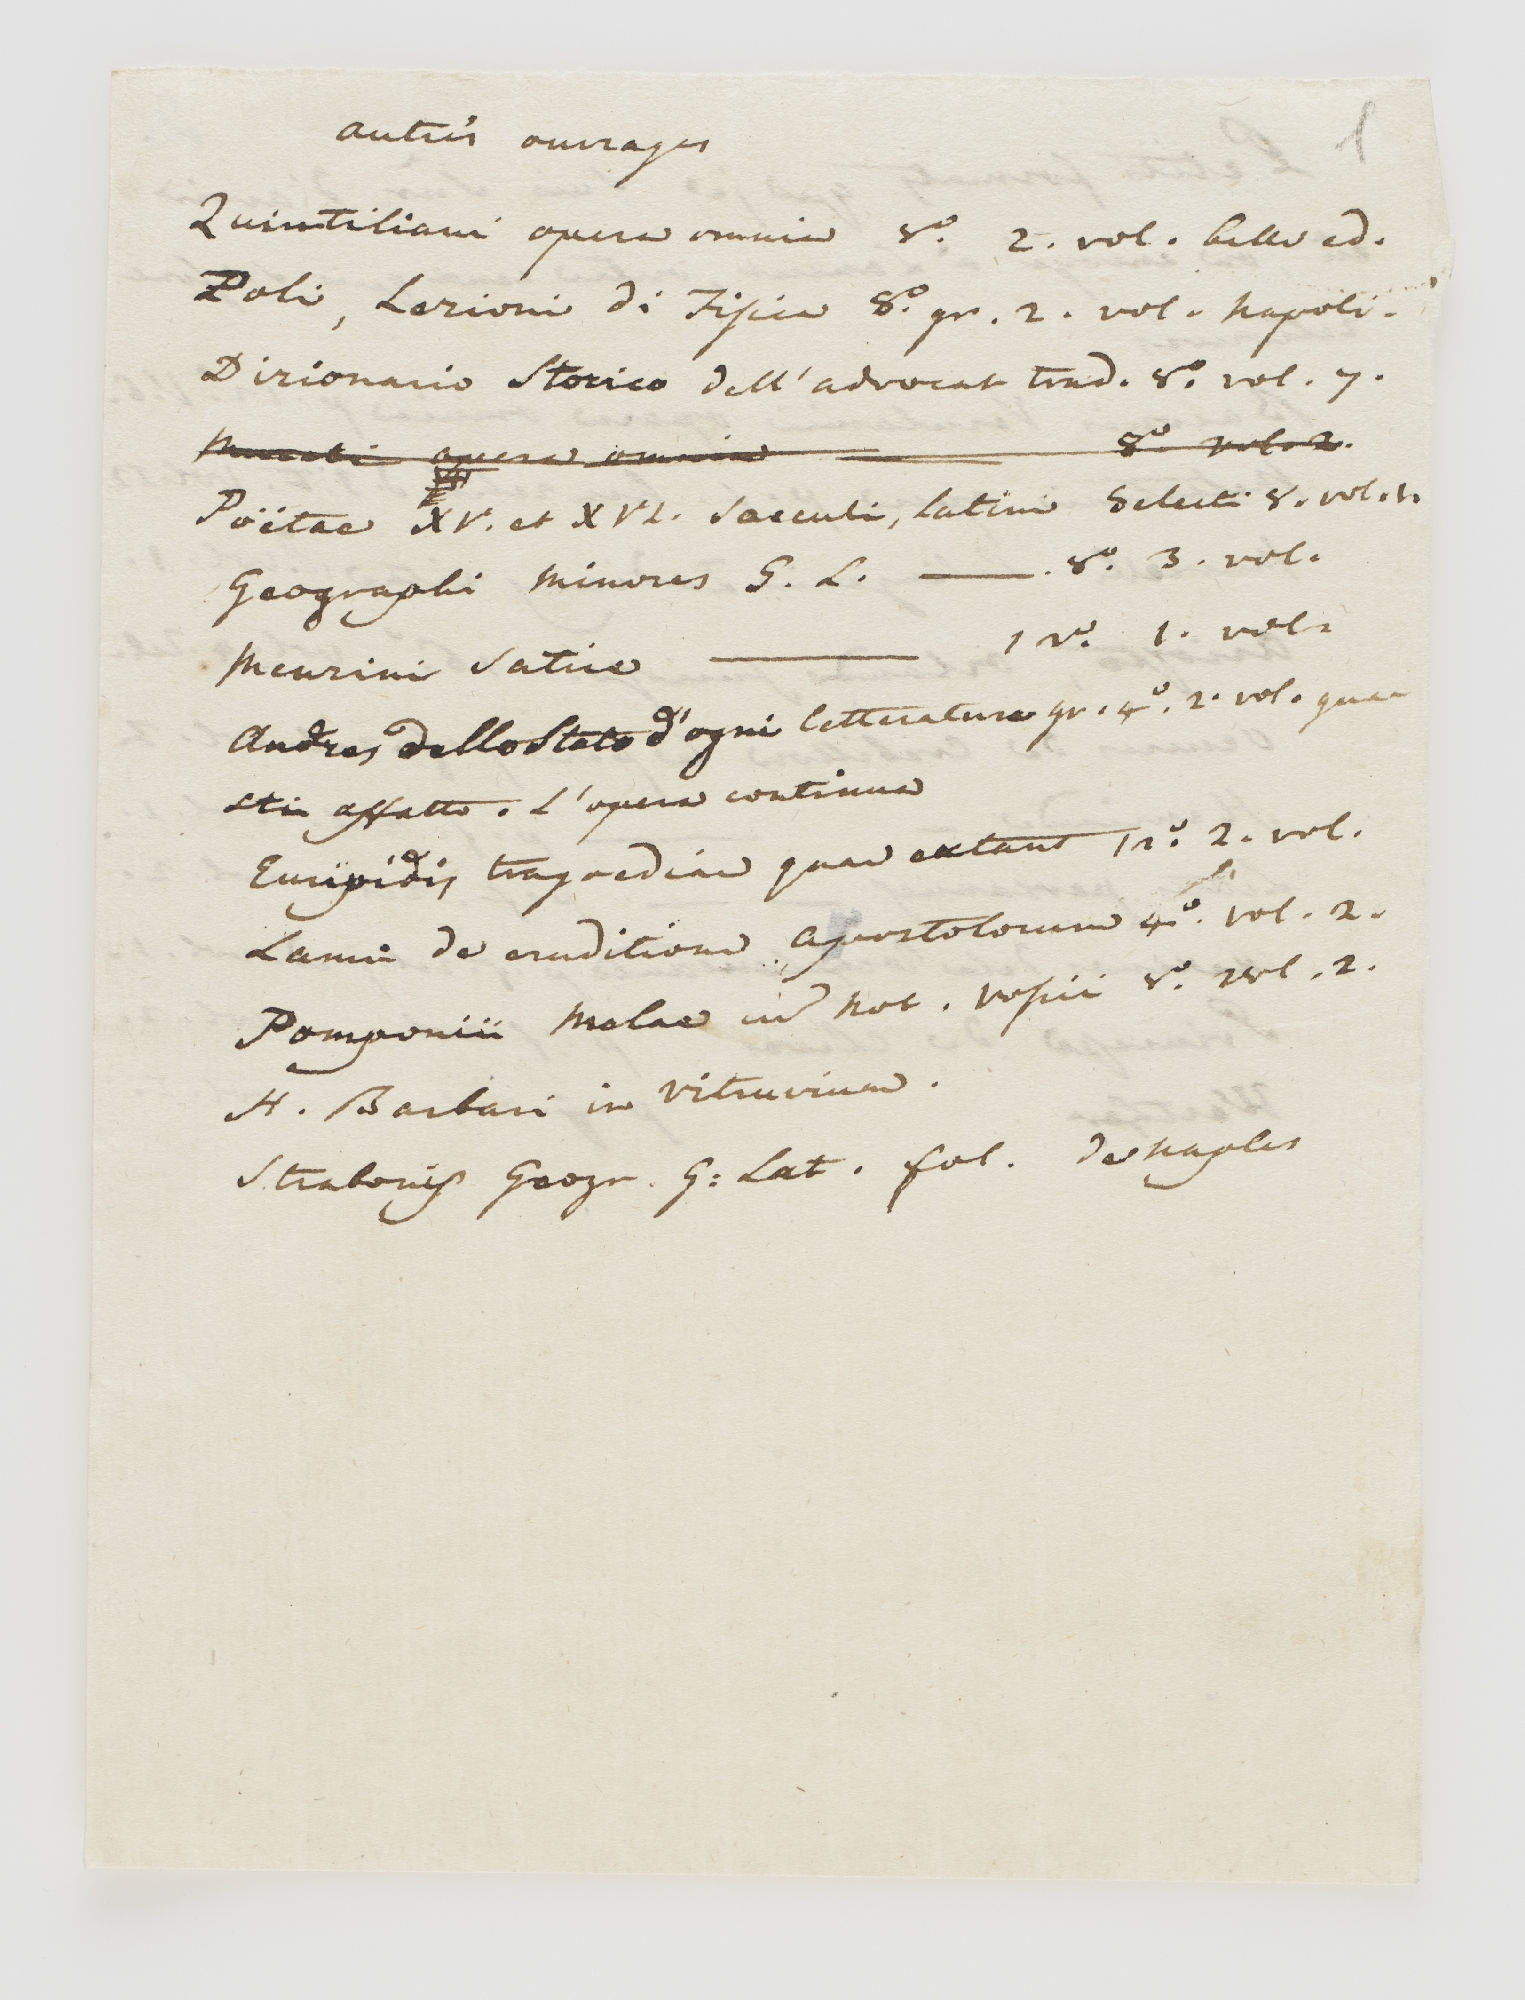 autres ouvrages
Quintiliani opera omnia 8º. 2. vol. bella ed.
Poli, Lezioni di Fisica 8º. gr. 2. vol. Napoli.
Dizionario Storico dell'advocat trad. 8º. vol. 7.
opera omnia 8º vol. 2.
Poëtae XV. et XVI. Saeculi, Latini Selecti 8. vol. 1.
Geographi Minores G. L. —— 8º. 3. vol.
Menzini Satire —— 12º. 1. vol.
Andres dello Stato d'ogni letteratura gr. 4º. 2. vol. gua-
sti affatto. L'opera continua
Euripidis tragoediae quae extant 12º. 2. vol.
Lami de eruditione Apostolorum 4º. vol. 2.
Pomponii Melae cū not. Vossii 8º. vol. 2.
H. Barbari in Vitruvium.
Strabonis Geogr. G: Lat. fol. de Naples